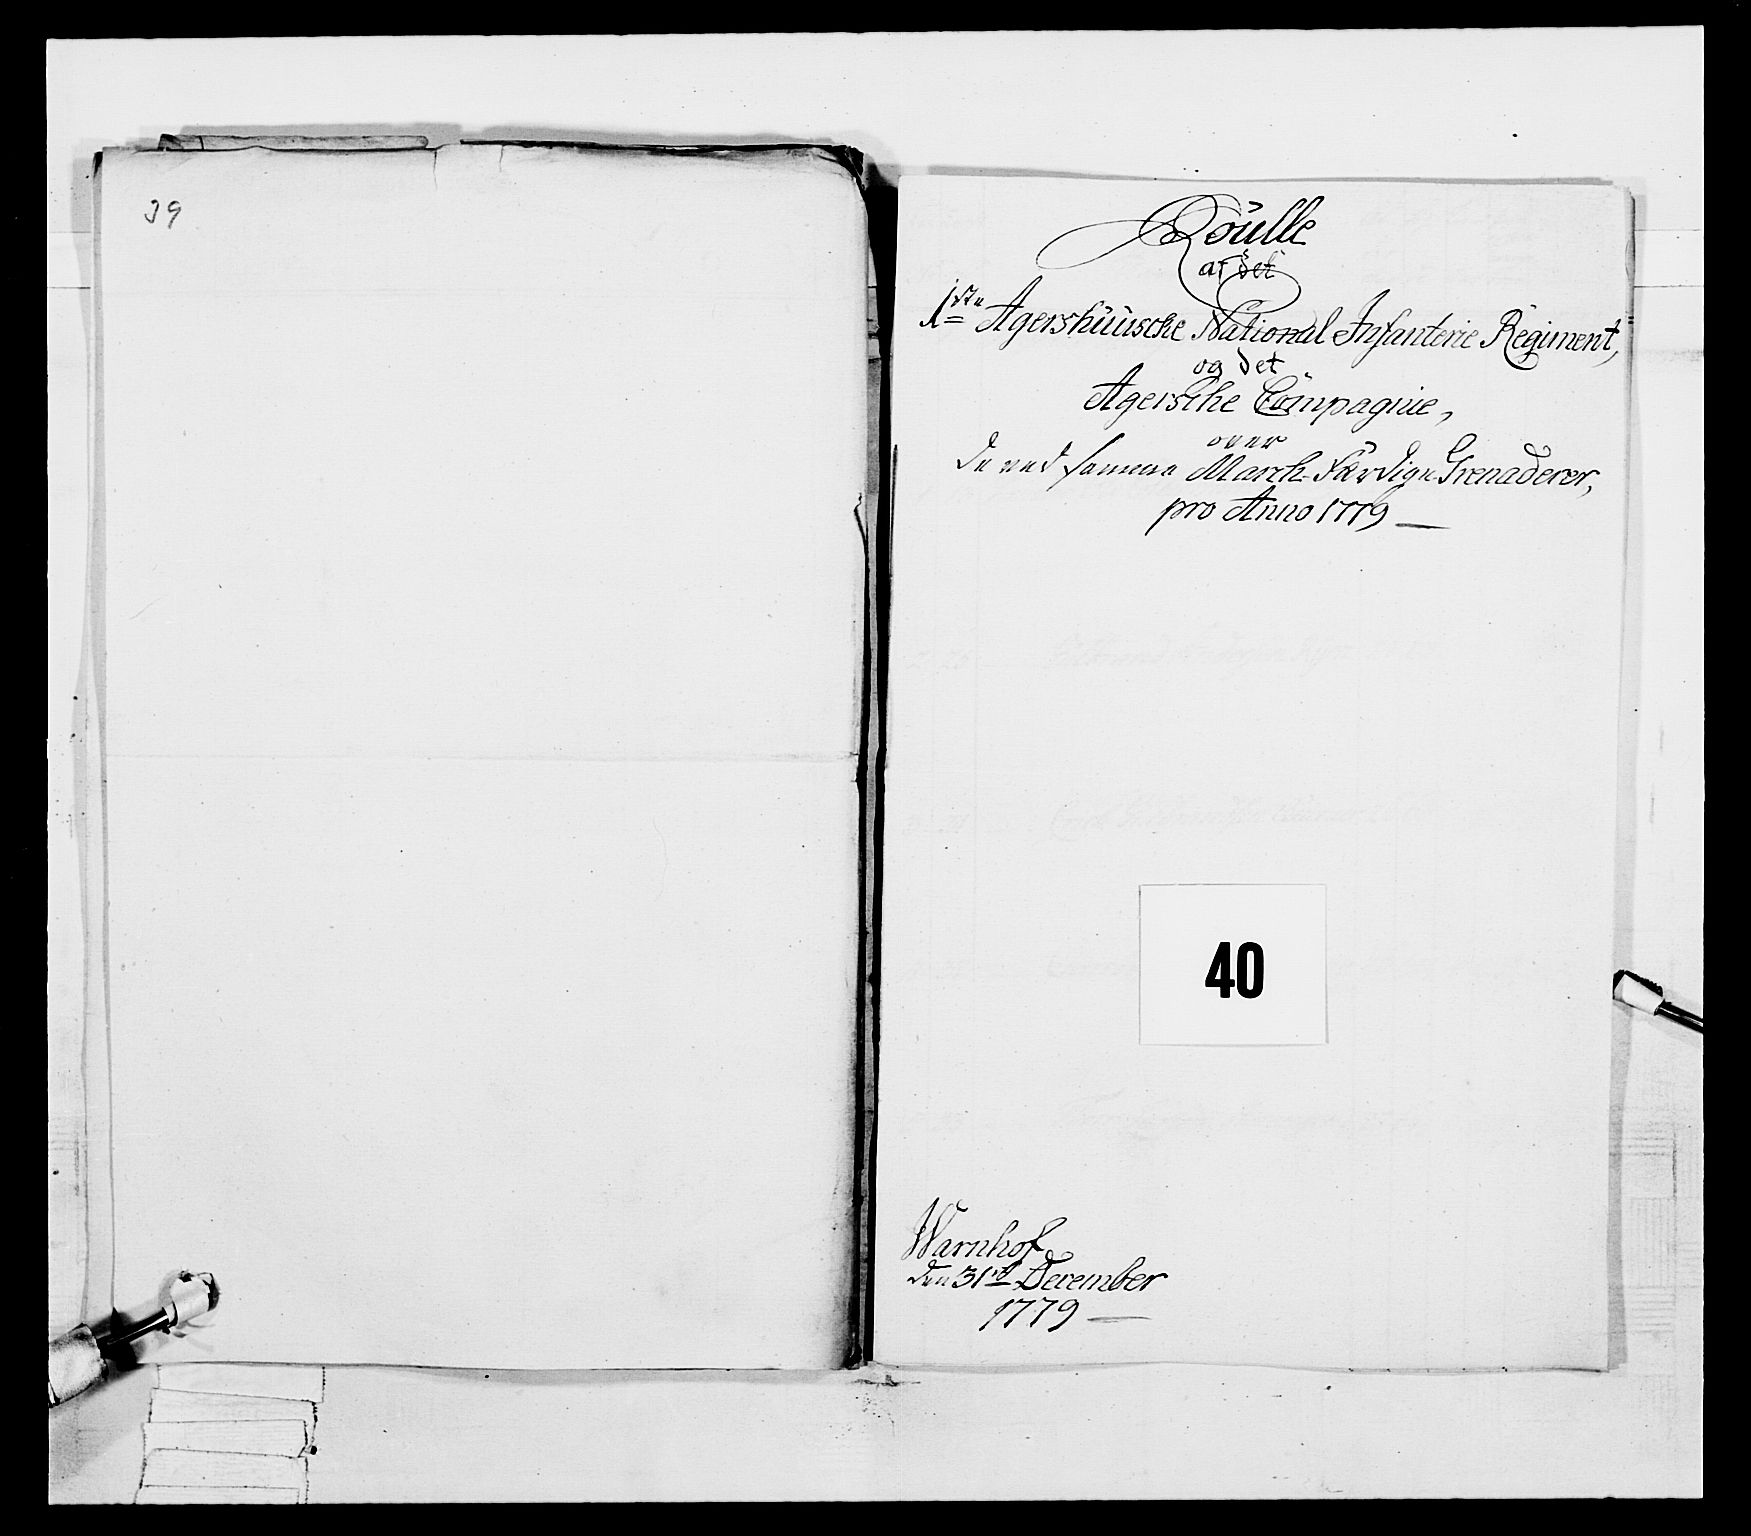 39
Roulle
af det
1ste Agershuusche National Infanterie Regiment,
og det
Agersche Compagnie,
over
de ved samme March-Færdige Grenaderer,
pro Anno 1779
40
Warnhof
den 31ts December
1779